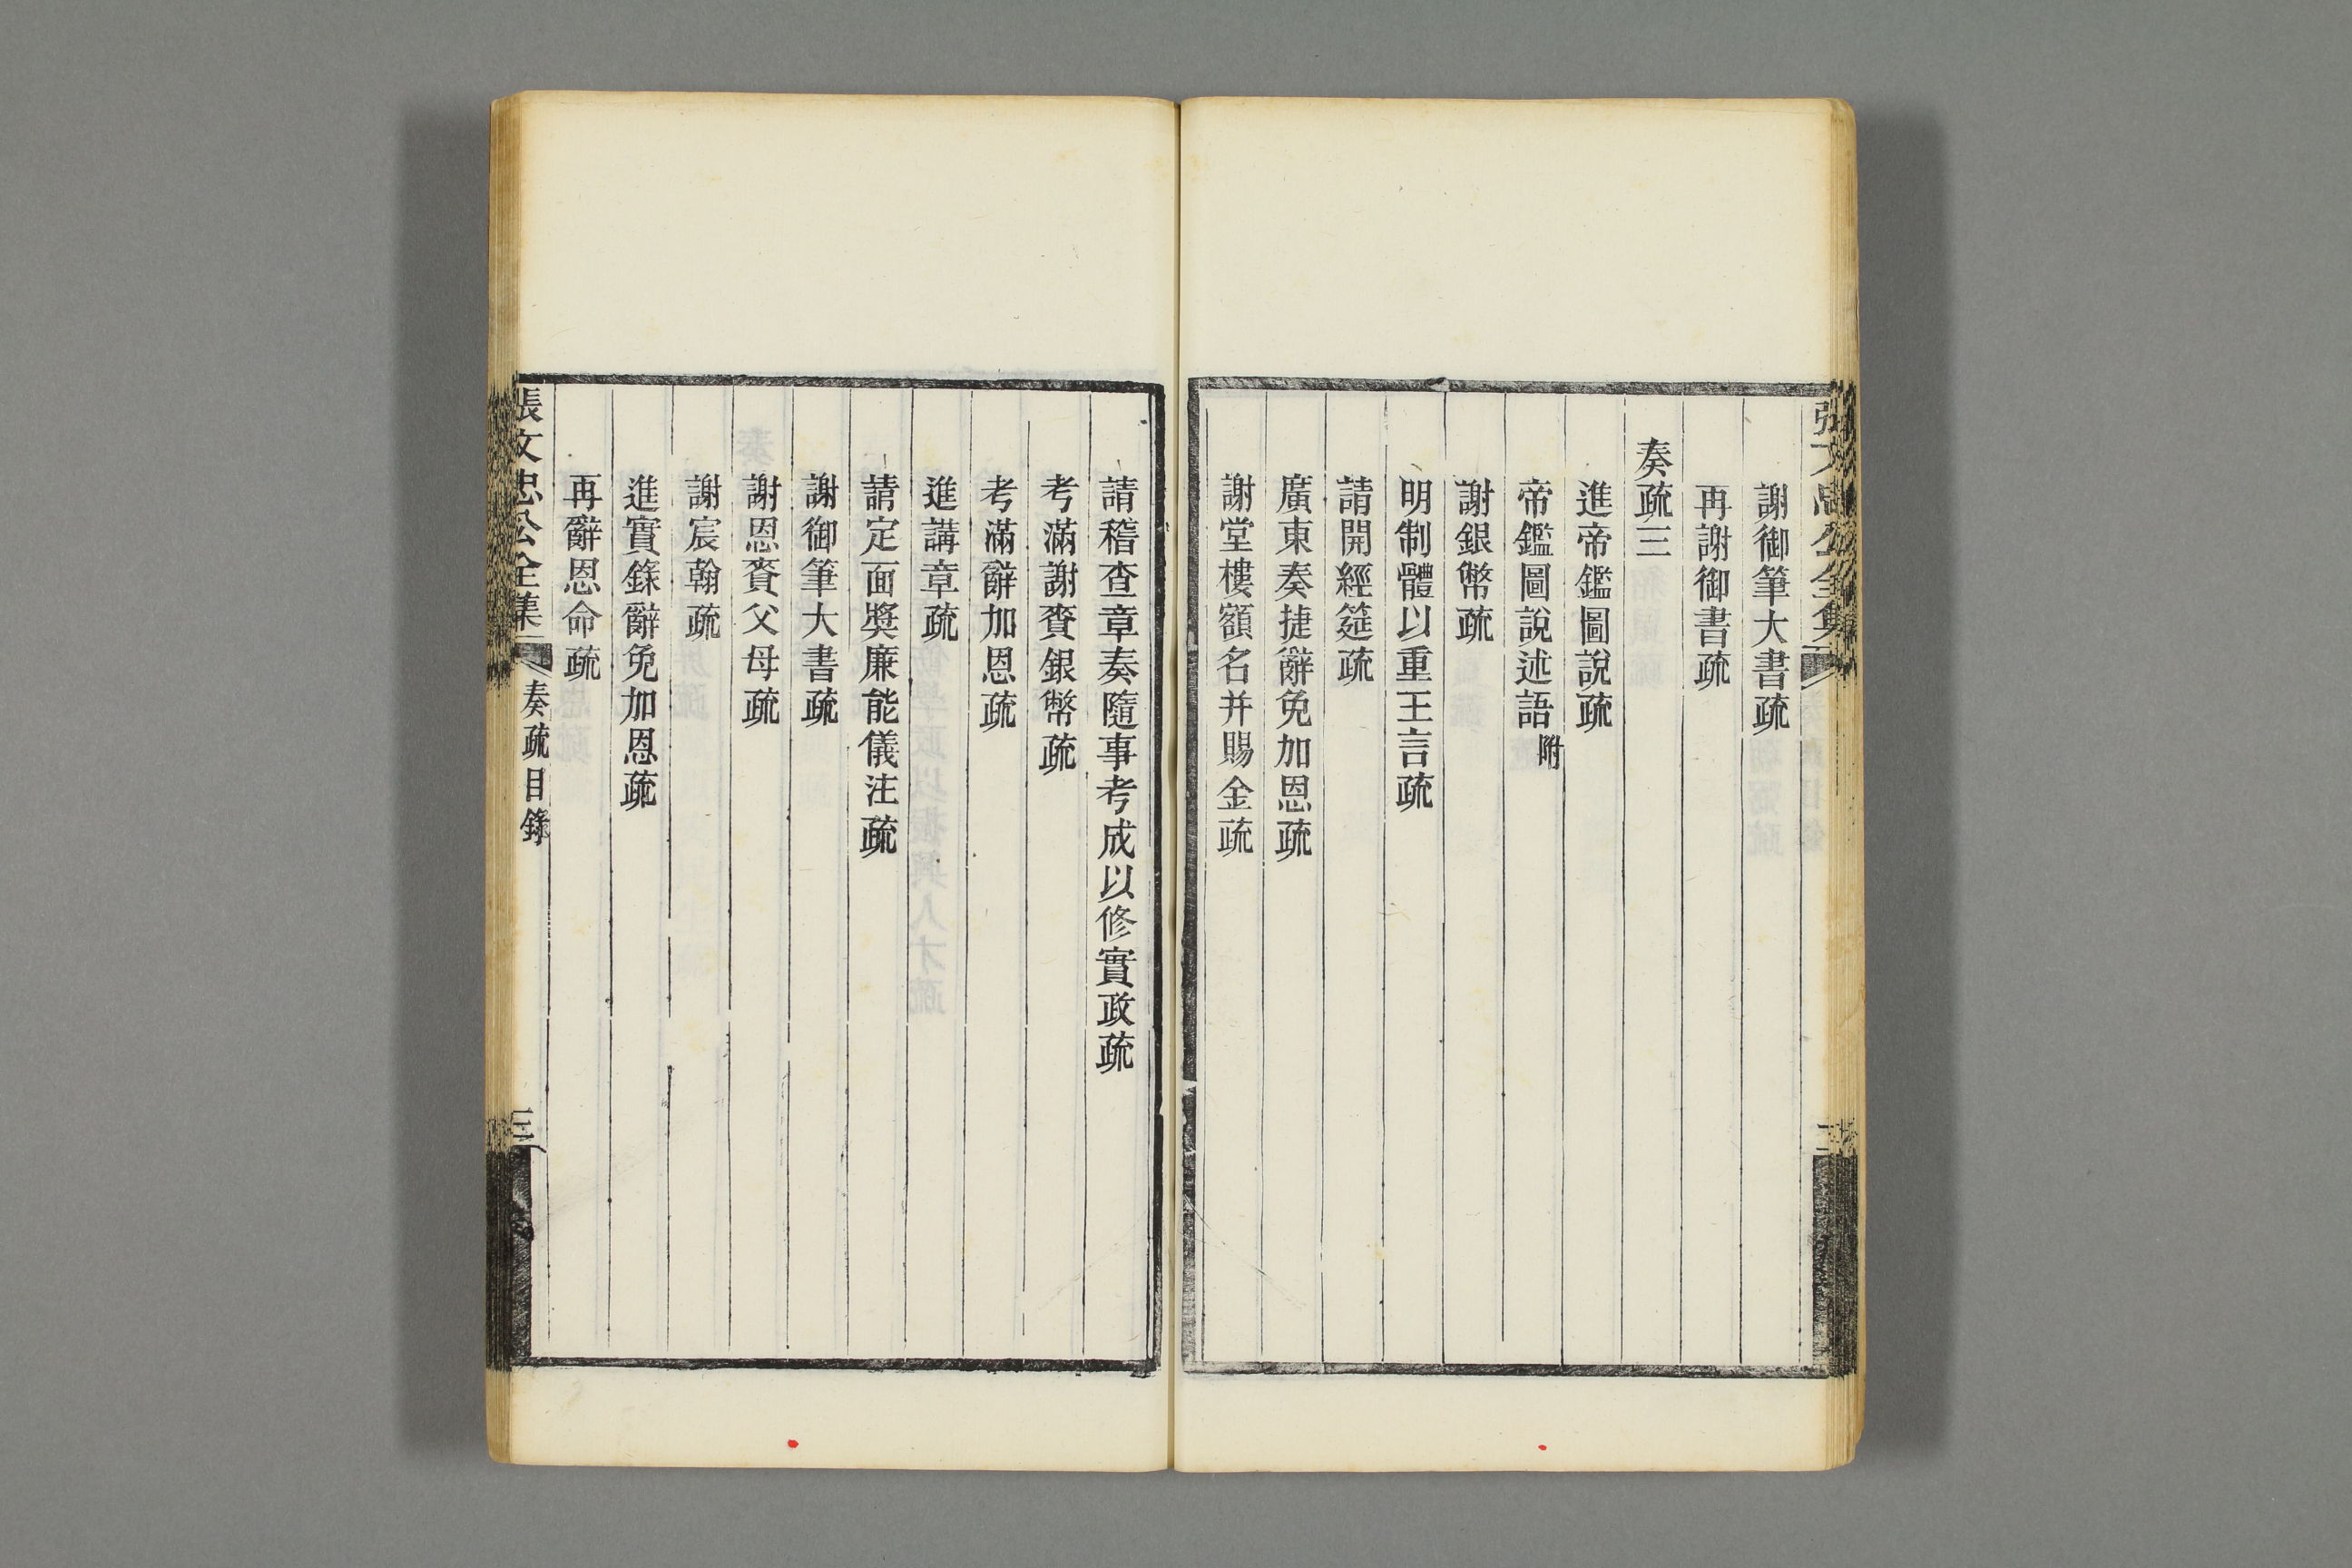 謝御筆大書疏
再謝御書疏
奏疏三
進帝鑑圖說疏
帝鑑圖說述語附
謝銀幣疏
明制體以重王言疏
請開經筵疏
廣東奏捷辭免加恩疏
謝堂樓額名并賜金疏
請稽查章奏隨事考成以修實政疏
考滿謝賚銀幣疏
考滿辭加恩疏
進講章疏
請定面獎廉能儀注疏
謝御筆大書疏
謝恩賚父母疏
謝宸翰疏
進實錄辭免加恩疏
再辭恩命疏
張文忠公全集
奏疏目錄
三